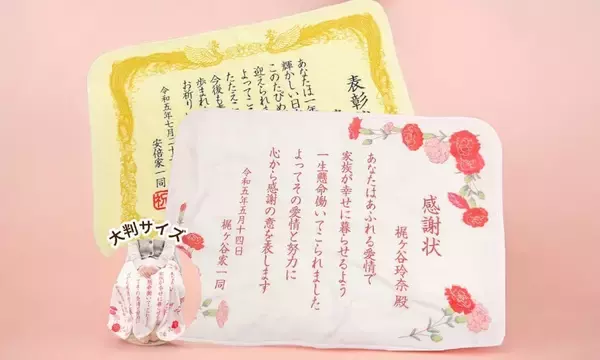 感謝状
梶ヶ谷玲奈 殿
あなたはあふれる愛情で
家族が幸せに暮らせるよう
一生懸命働いてこられました
よってその愛情と努力に
心から感謝の意を表します
令和五年五月十四日
梶ヶ谷家一同
表彰
あなたは一年
輝かしい日
このたびめ
迎えられま
よってここ
たたえこ
今後も
歩まれ
お祈り
令和五年七月二十
安倍家一同
大判サイズ